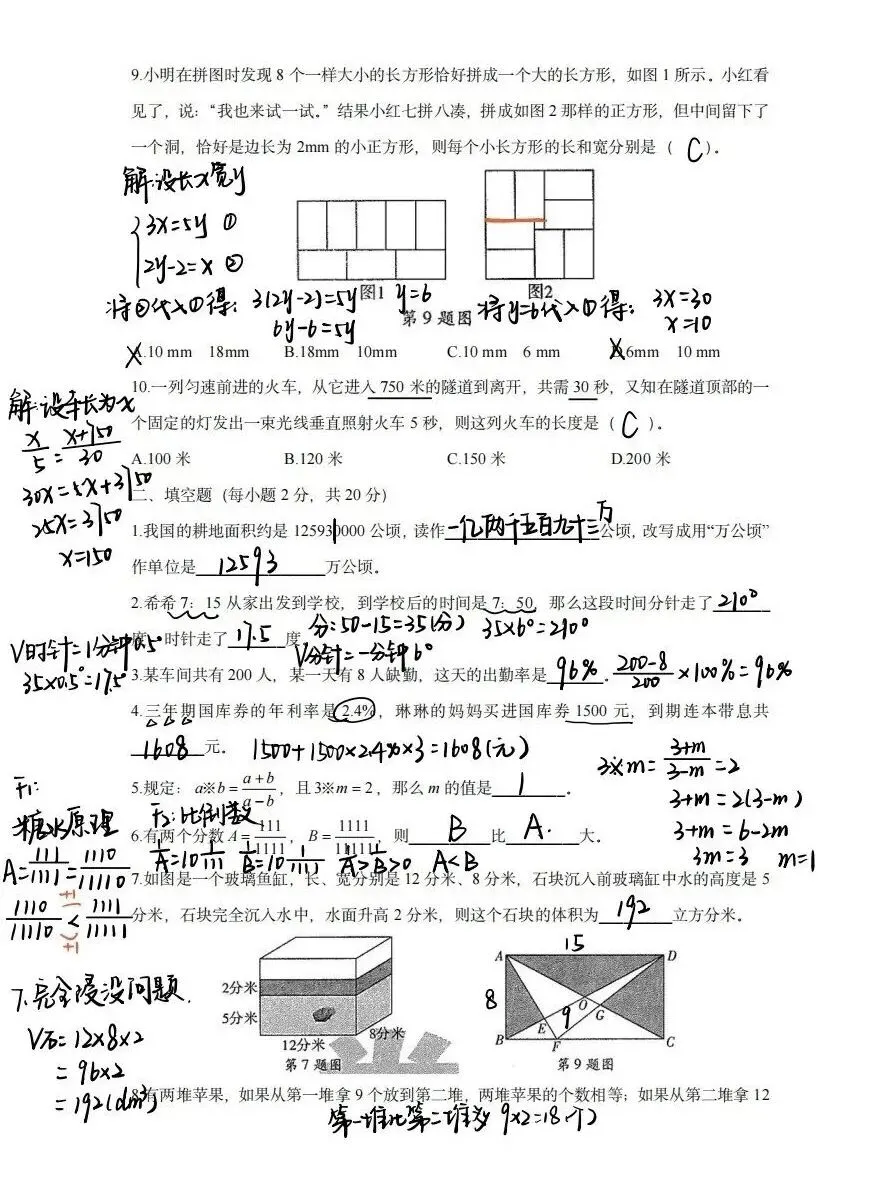 9.小明在拼图时发现 8 个一样大小的长方形恰好拼成一个大的长方形，如图 1 所示。小红看
见了，说：“我也来试一试。”结果小红七拼八凑，拼成如图 2 那样的正方形，但中间留下了
一个洞，恰好是边长为 2mm 的小正方形，则每个小长方形的长和宽分别是（ C ）。
解:设长x宽y
3x=5y ①
2y-2=x ②
图1
图2
将②代入①得: 3(2y-2)=5y y=6
6y-6=5y
第 9 题图
将y=6代入①得: 3x=30
x=10
A.10 mm 18mm B.18mm 10mm C.10 mm 6 mm D.6mm 10 mm
10.一列匀速前进的火车，从它进入 750 米的隧道到离开，共需 30 秒，又知在隧道顶部的一
个固定的灯发出一束光线垂直照射火车 5 秒，则这列火车的长度是（ C ）。
A.100 米 B.120 米 C.150 米 D.200 米
解:设车长为x
x/5=(x+750)/30
30x=5x+3750
25x=3750
x=150
二、填空题（每小题 2 分，共 20 分）
1.我国的耕地面积约是 125930000 公顷，读作一亿两千五百九十三万公顷，改写成用“万公顷”
作单位是 12593 万公顷。
2.希希 7：15 从家出发到学校，到学校后的时间是 7：50，那么这段时间分针走了 210°
度，时针走了 17.5 度
分:50-15=35(分) 35×6°=210°
V时针=1分钟0.5°
35×0.5°=17.5°
V分针=一分钟6°
3.某车间共有 200 人，某一天有 8 人缺勤，这天的出勤率是 96%. (200-8)/200×100%=96%
4.三年期国库券的年利率是 2.4%，琳琳的妈妈买进国库券 1500 元，到期连本带息共
1608 元。 1500+1500×2.4%×3=1608(元)
5.规定：a※b=(a+b)/(a-b)，且 3※m=2，那么 m 的值是 1 。
3※m=(3+m)/(3-m)=2
3+m=2(3-m)
3+m=6-2m
3m=3 m=1
6.有两个分数 A=111/1111，B=1111/11111，则 B 比 A 大。
F1:
糖水原理
A=111/1111=1110/11110
1110/11110<1111/11111
+1
+1
F2:比倒数
1/A=10 1/111 1/B=10 1/1111 1/A>1/B>0 A<B
7.如图是一个玻璃鱼缸，长、宽分别是 12 分米、8 分米，石块沉入前玻璃缸中水的高度是 5
分米，石块完全沉入水中，水面升高 2 分米，则这个石块的体积为 192 立方分米。
7.完全浸没问题.
V石=12×8×2
=96×2
=192(dm³)
2分米
5分米
12分米
8分米
第 7 题图
15
A
D
8
O
E
9
G
B
F
C
第 9 题图
8.有两堆苹果，如果从第一堆拿 9 个放到第二堆，两堆苹果的个数相等；如果从第二堆拿 12
第一堆比第二堆多 9×2=18(个)